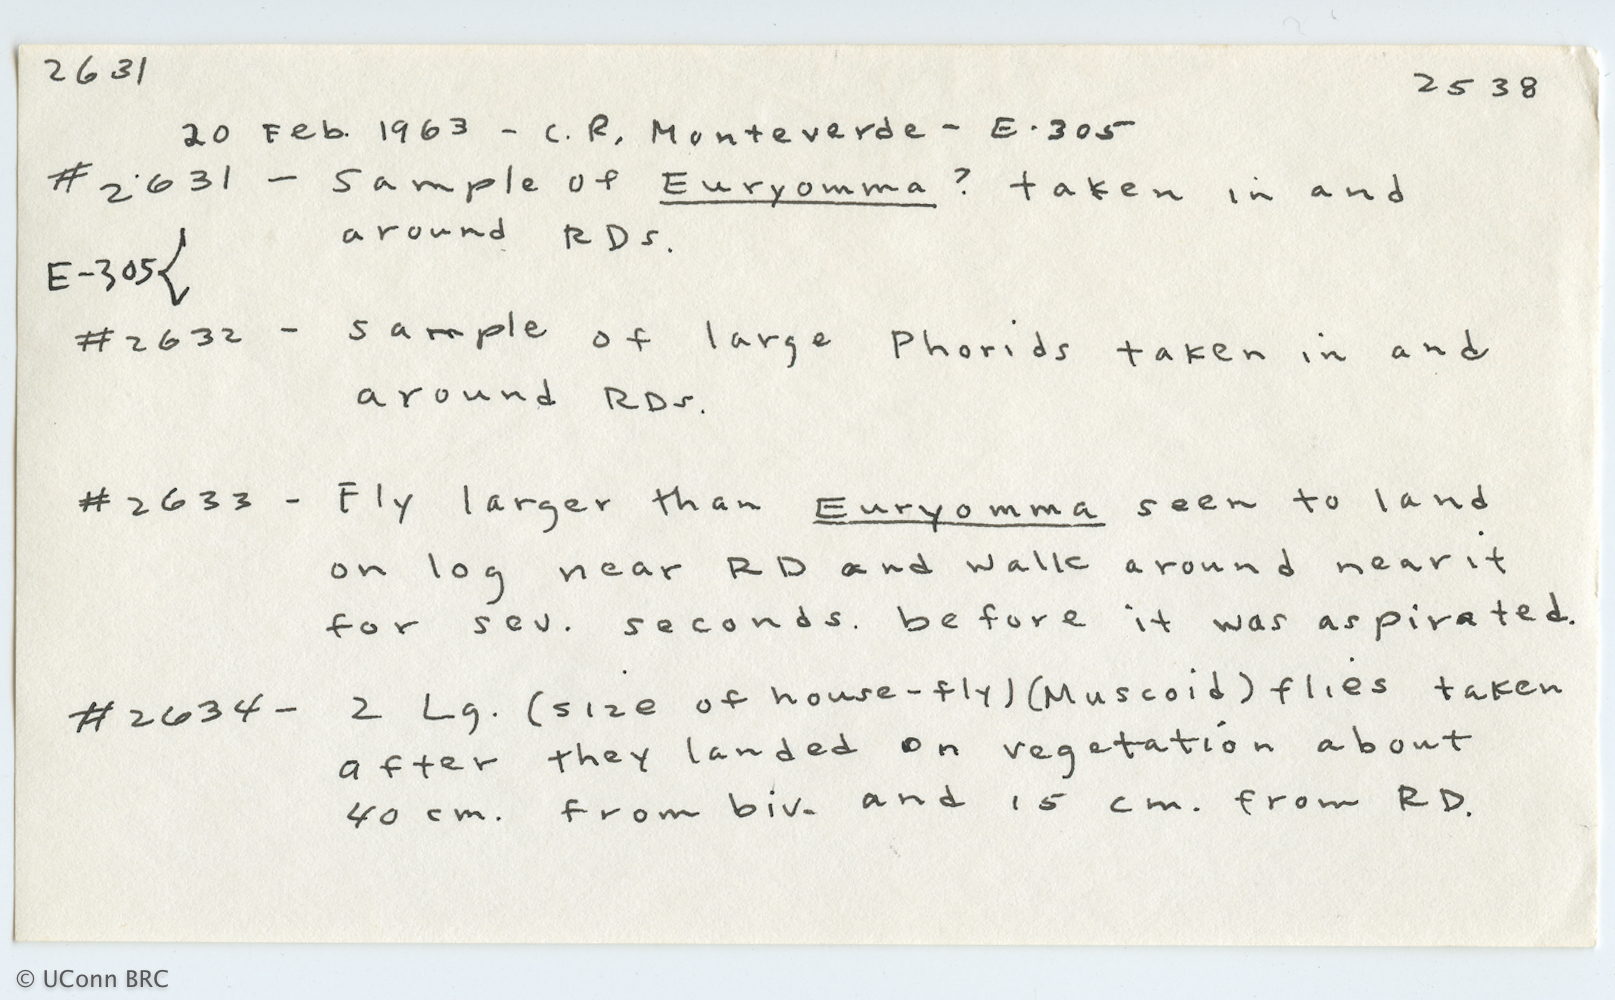 2631
2538
20 Feb. 1963 - C.R. Monteverde - E-305
#2631 - Sample of Euryomma? taken in and
around RDs.
E-305{
#2632 - Sample of large Phorids taken in and
around RDs.
#2633 - Fly larger than Euryomma seen to land
on log near RD and walk around near it
for sev. seconds. before it was aspirated.
#2634 - 2 Lg. (size of house-fly) (Muscoid) flies taken
after they landed on vegetation about
40 cm. from biv. and 15 cm. from RD.
© UConn BRC